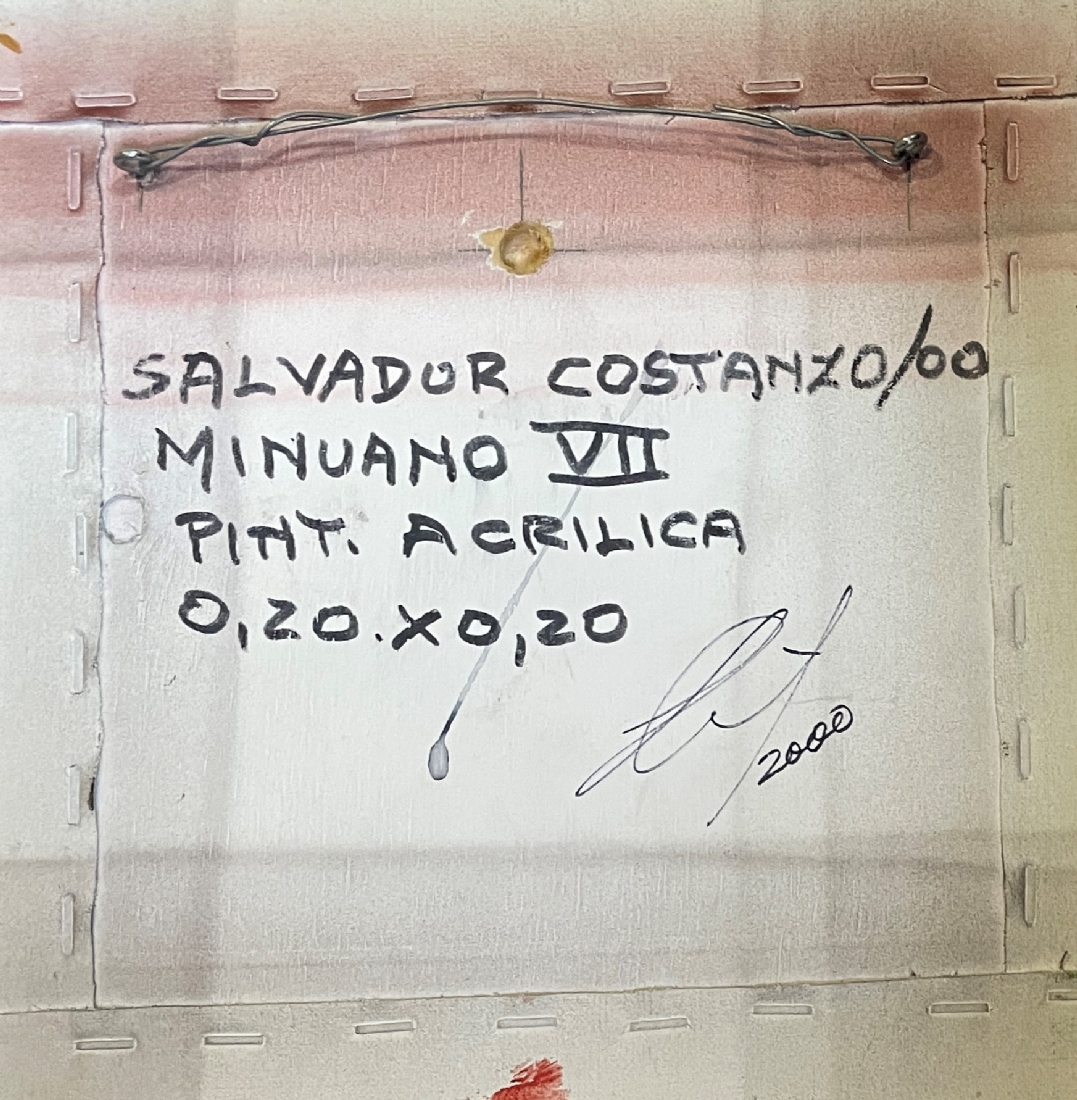 SALVADOR COSTANZO/00
MINUANO VII
PINT. ACRILICA
0,20.X0,20
2000